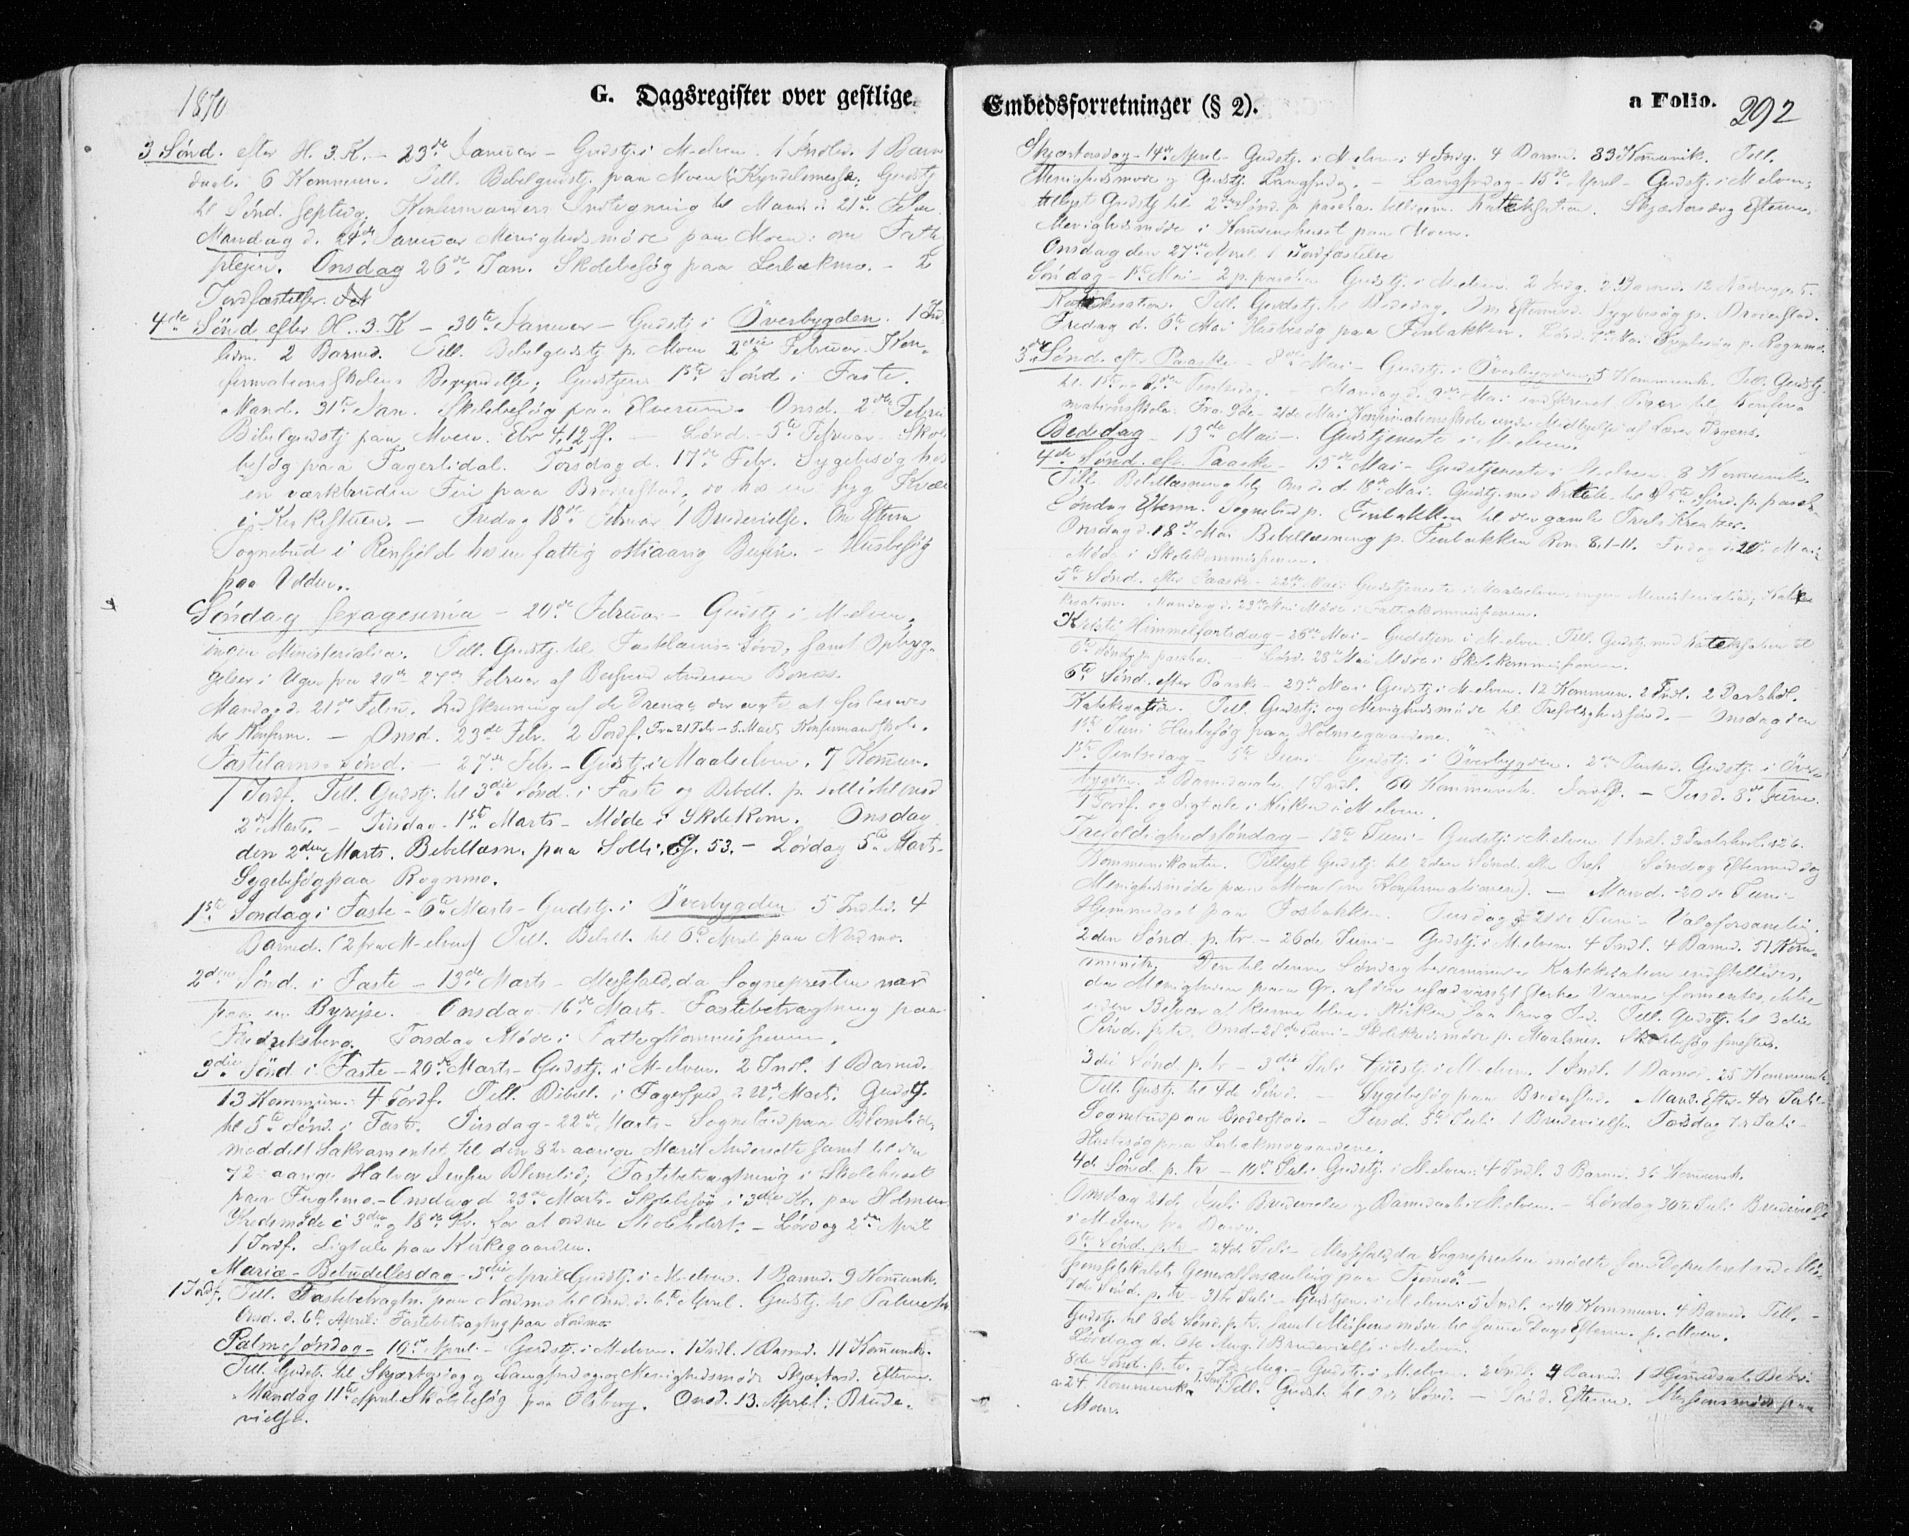 1870
G. Dagsregister over gestlige
3 Sønd. efter H. 3. K. - 23de Januar - Gudstj. i M-elven. 1 Indled. 1 Barne
daab. 6 Kommun. Till. Bibelgudstj. paa Moen Kyndelmesse. Gudstj
til Sønd. Septuag. Konfirmanders Indtegning til Mand. 21de Febr.
Mandag d. 24de Januar Menighedsmøde paa Moen: om Fattig
plejen. Onsdag 26de Jan. Skolebesøg paa Lerbakmo. - 2
Jordfæstelser.
4de Sønd efter H. 3. K - 30te Januar - Gudstj i Överbygden. 1 Ind
ledn. 2 Barned. Till. Bibelgudstj p. Moen 2den Februar. Kon-
firmationsskolens Begyndelse; Gudstjen 1ste Sønd i Faste.
Mand. 31te Jan. Skolebesøg paa Elverum. Onsd. 2den Febru
Bibelgudstj paa Moen. Ebr 4,12 ff. - Lørd. 5te Februar - Skole
besøg paa Fagerlidal. Torsdag d. 17de Febr. Sygebesøg hos
en værkbruden Fin paa Brøderstad, do hos en syg
i Kirkestuen. - Fredag 18de Februar 1 Brudevielse. Om Efterm
Sognebud i Renfjeld hos en fattig ottiaarig - Husbesøg
paa Udden.
Søndag sexagesima - 20de Februar - Gudstj i M-elven,
ingen Ministerialia. Till. Gudstj. til Fastelavns-Sønd, samt Opbyg-
gelser i Ugen fra 20de - 27de Februar af Andersen Bonæs.
Mandag d. 21de Febru. Indskrivning af de Drenge der
til Konfirm. - Onsd. 23de Febr. 2 Jordf. Fra 21 Febr - 5 Marts Konfirmandskole.
Fastelavns-Sønd. - 27de Febr. - Gudstj. i Maalselven. 7 Kommun.
1 Jordf. Till. Gudstj. til 3die Sønd. i Faste og Bibell. p. Solli til Onsd
2de Marts. - Tirsdag 1ste Marts - Møde i Skolekom. Onsdag
den 2den Marts. Bibellæsn. paa Solli. Es. 53. - Lørdag 5te Marts-
Sygebesøg paa Rognmo.
1ste Søndag i Faste - 6te Marts - Gudstj. i Överbygden 5 Indled. 4
Barned. (2 fra M-elven) Till. Bibell. til 6te April paa Nordmo.
2den Sønd. i Faste - 13de Marts - Messefald, da Sognepresten var
paa en Byrejse. Onsdag 16de Marts - Fastebetragtning paa
Fredriksberg. Torsdag Møde i Fattigkommissionen.
3die Sønd i Faste - 20de Marts - Gudstj. i M-elven. 2 Indl. 1 Barned.
13 Kommun. 4 Jordf. Till. Bibell. i Fagerfjeld d. 22de Marts. Gudstj.
til 5te Sønd. i Faste. Tirsdag - 22de Marts - Sognebud paa Blomlid,
meddelt Sakramentet til den 82-aarige Marit Andersdtr samt til den
72-aarige Halvor Jensen Blomlid; Fastebetragtning i Skolehuset
paa Fuglmo. - Onsdag d 23de Marts - Skolebesøg i 3die Kr. paa Holmen
Kredsmøde i 3die og 18de Kr. for at ordne Skoleholdet. - Lørdag 2den April
1 Jordf. Ligtale paa Kirkegaarden.
Mariæ-Bebudelsesdag - 3die April Gudstj. i M-elven. 1 Barned. 9 Kommunk.
1 Jordf. Till. Fastebetragtn. paa Nordmo til Onsd. d. 6te April. Gudstj. til Palmesøn
Onsd. d. 6te April: Fastebetragtng paa Nordmo
Palmesøndag - 10de April - Gudstj. i M-elven. 1 Indl. 1 Barned. 11 Kommunk.
Till. Gudstj. til Skjærtorsdag og Langfredag og Menighedsmøde Skjærtorsd. Efterm.
Mandag 11te April Skolebesøg paa Olsborg. Onsd. 13. April: Brude-
vielse.
Embedsforretninger (§ 2).
a Folio. 292
Skjærtorsdag - 14de April - Gudstj. i M-elven: 4 Indlg. 4 Barned. 83 Kommunik. Till.
Menighedsmøde og Gudstj. Langfredag. - Langfredag - 15de April - Gudstj. i M-elven,
tillyst Gudstj til 2den Sønd. p. paascha Kateksation. Skjærtorsdag Efterm.
Menighedsmøde i Kommunehuset paa Moen.
Onsdag den 27de April 1 Jordfæstelse
Søndag - 1ste Mai - 2 p. pascha Gudstj. i M-elven. 2 Indlg. 2 Barned. 12
Kateksation. Till. Gudstj. til Bededag. Om Eftermid. Sygebesøg p. Brøderstad.
Fredag d. 6te Mai Husbesøg paa Finbakken. Lørd. 7de Mai p. Rognmo.
3die Sønd. efter Paaske - 8de Mai - Gudstj. i Överbygden. 5 Kommunk. Till. Gudstj.
til 1ste og 2den Pintsedag. - Mandag d. 9de Mai indskrevet Piger til Konfir-
mationsskole. Fra 9de - 21de Mai Konfirmationsskole under Medhjælp af Lærer
Bededag - 13de Mai - Gudstjeneste i M-elven.
4de Sønd. eft. Paaske - 15de Mai - Gudstjeneste i M-elven 8 Kommunk.
Till Bibellæsning til Onsd. d. 18de Mai. Gudstj. med Katek. til 5te Sønd. p. pasch
Søndag Efterm. Sognebud p. Finbakken til den gamle
Onsdag d. 18de Mai Bibellæsning p. Finbakken Rom 8,1-11. Fredag d. 20de Mai
Møde i Skolekommissionen.
5te Sønd. efter Paaske - 22de Mai Gudstjeneste i Maalselven, ingen Ministerialia; Katek
isation. Mandag d. 23de Mai Møde i Fattigkommissionen.
Kristi Himmelfartsdag - 26de Mai - Gudstjen i M-elven. Till. Gudstj. med Kateksation til
6te Sønd. p. pascha. - Lørd. 28de Mai Møde i Skolekommissionen.
6te Sønd. efter Paaske - 29de Mai Gudstj. i M-elven. 12 Kommun. 2 Indl. 2 Barnd.
Kateksation. Till. Gudstj og Menighedsmøde til Trefoldighedssønd. - Onsdag den
1ste Juni Husbesøg paa Holmegaardene.
1ste Pintsedag - 5te Juni Gudstj. i Överbygden. 2den Pintsed. Gudstj. i Över-
bygden. 2 Barnedaab 1 Indl. 60 Kommunik. Jordf. - Tirsd. 8de Juni
1 Jordf. og Ligtale i Kirken i M-elven.
Trefoldighedssøndag - 12te Juni - Gudstj. i M-elven 1 Indl. 3 126
Kommunikanter. Tillyst Gudstj til 2den Sønd. efter Tref. Søndag Eftermiddag
Menighedsmøde paa Moen (om Konfirmationen). - Mand. 20de Juni -
Hjemmedaab paa Fosbakken. Tirsdag d 21de Juni - Valgforsamling.
2den Sønd. p. tr. - 26de Juni - Gudstj. i M-elven. 4 Indl. 4 Barned. 51 Kom-
munik. Den til denne Søndag bestemmte Kateksation indstilledes,
da Menigheden paa Gr. af den usædvanligt sterke Varme formentes, ikke
uden Besvær at kunne blive i Kirken saa lang Tid. Till. Gudstj. til 3die
Sønd. p. tr. Onsd. 28de Juni - Skolekredsmøde p. Maalsnes.
3die Sønd p. tr - 3die Juli Gudstj i M-elven. 1 Indl. 1 Barned. 25 Kommunk.
Till. Gudstj. til 4de Sønd. - Sygebesøg paa Brøderstad. Mand. Efter. 4de Juli -
Sognebud paa Brøderstad. - Tirsd. 5te Juli 1 Brudevielse. Torsdag 7de Juli -
Husbesøg paa Lerbakmogaardene.
4de Sønd. p. tr - 10de Juli Gudstj. i M-elven: 4 Indl. 3 Barned. 36 Kommunk.
Onsdag 21de Juli Brudevielse og Barnedaab i M-elven. - Lørdag 30te Juli Brudevielse
i M-elven fra Bardo.
6te Sønd. p. tr. - 24de Juli - Messefald, da Sognepresten mødte som Deputeret ved Mis-
sionsselskabets Generalforsamling paa Tromsö. -
7de Sønd. p. tr - 31te Juli - Gudstjen. i M-elven: 5 Indl. 40 Kommun. 4 Barned. Till. -
Gudstj. til 8de Sønd. p. tr. samt Missionsmøde til samme Dags Efterm. p. Moen.
Lørdag d. 6te Aug. 1 Brudevielse i M-elven.
8de Sønd. p. tr. - 7de Aug. - Gudstj. i M-elven 2 Indl. 4 Barned. 1 Hjemmedaab Bekr.
24 Kommunik. Till. Gudstj. til 9de Sønd. - Sønd. Efterm. Missionsmøde paa
Moen.